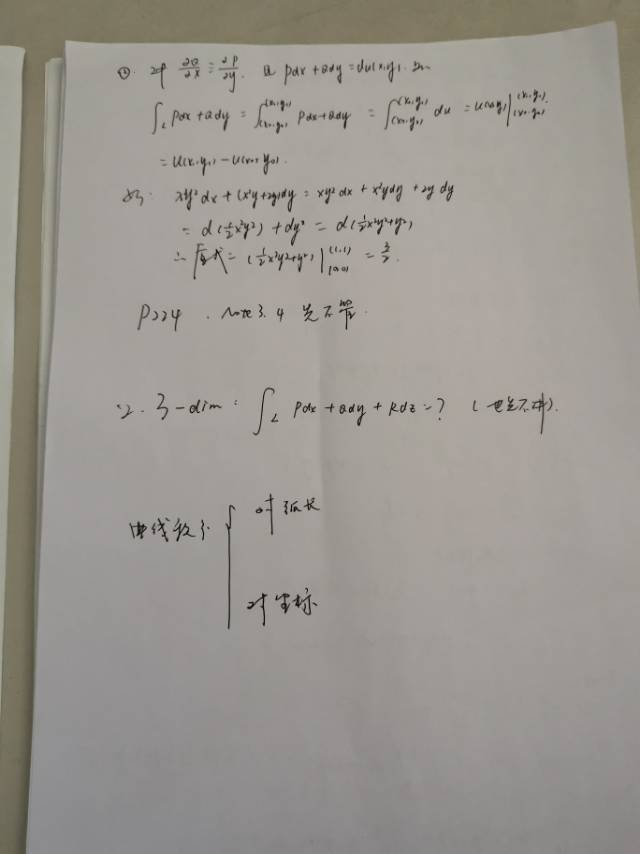 ② 对 ∂Q/∂x = ∂P/∂y. 且 Pdx + Qdy = du(x,y). 则
∫_L Pdx + Qdy = ∫_(x₀,y₀)^(x₁,y₁) Pdx + Qdy = ∫_(x₀,y₀)^(x₁,y₁) du = u(x,y)|_(x₀,y₀)^(x₁,y₁)
= u(x₁,y₁) - u(x₀,y₀).
如: xy²dx + (x²y+2y)dy = xy²dx + x²ydy + 2ydy
= d(½x²y²) + dy² = d(½x²y²+y²)
∴ 原式 = (½x²y²+y²)|_(0,0)^(1,1) = 3/2.
P224. Note 3.4 先不管.
2. 3-dim: ∫_L Pdx + Qdy + Rdz = ? (也先不讲).
曲线积分
对弧长
对坐标